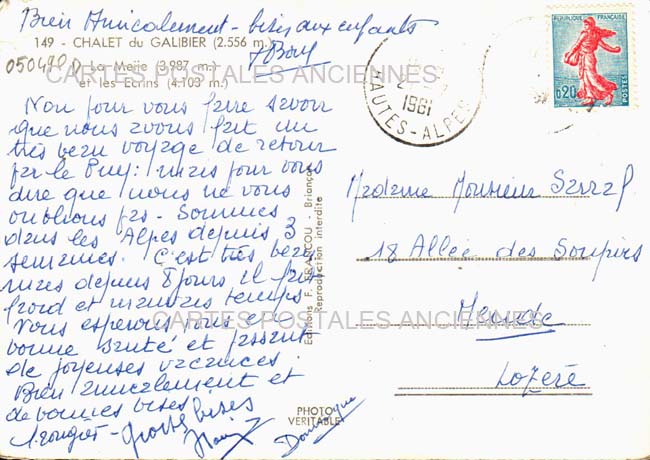 Bien Amicalement - bises aux enfants
149 - CHALET du GALIBIER (2.556 m.)
050490 D La Meije (3.987 m.)
et les Ecrins (4.103 m.)
CARTES POSTALES ANCIENNES
Non pour vous faire savoir
que nous avons fait un
très beau voyage de retour
par le Puy: mais pour vous
dire que nous ne vous
oublions pas - Sommes
dans les Alpes depuis 3
semaines. C'est très beau
mais depuis 8 jours il fait
froid et mauvais temps.
Nous espérons vous en
bonne santé et passent
de joyeuses vacances.
Bien amicalement et
de bonnes bises
grosses bises
Dominique
Editions F. FRANCOU - Briançon
Reproduction interdite
PHOTO
VERITABLE
1961
HAUTES-ALPES
REPUBLIQUE FRANÇAISE
0,20
POSTES
Madame Monsieur
18 Allée des Soupirs
Mende
Lozère
CARTES POSTALES ANCIENNES